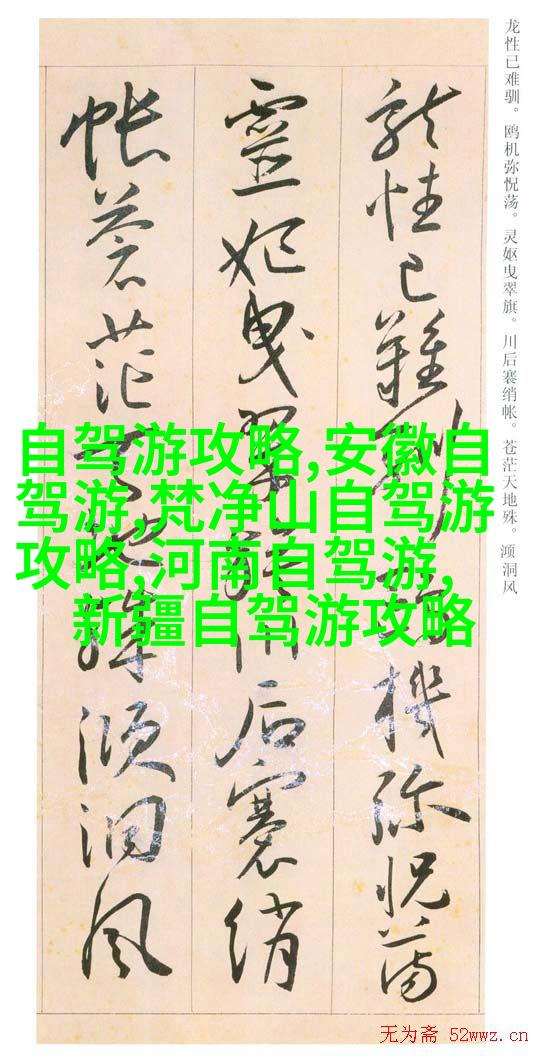 龙性已难驯。鸥机弥怳荡。灵妪曳翠旗。川后褰绡帐。苍茫天地殊。澒洞风
龙性已难驯鸥机弥怳荡
靈妃曳翠旗川后褰绡
帐苍茫天地殊澒洞风
自驾游攻略,安徽自
驾游,梵净山自驾游
攻略,河南自驾游,
新疆自驾游攻略
无为斋 52wwz.cn